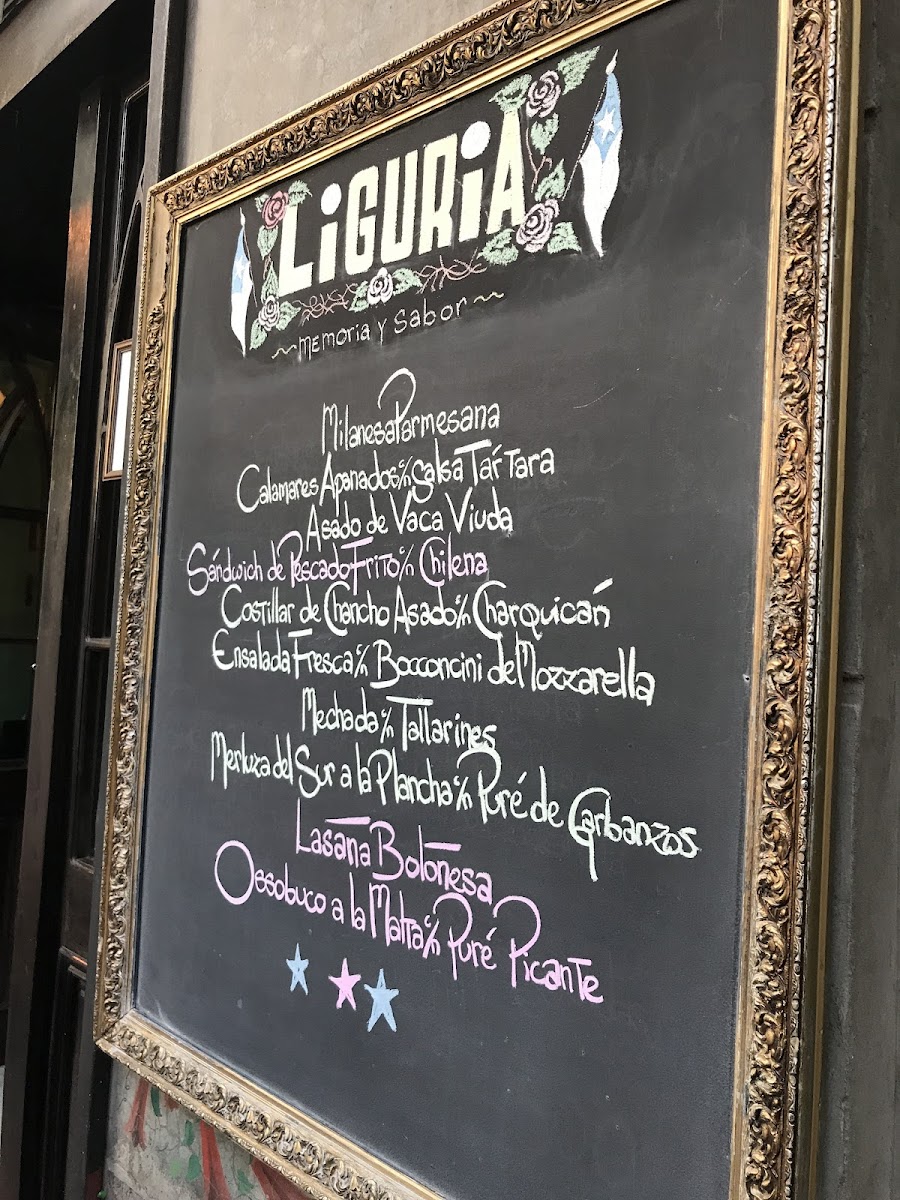 LiGURiA
~Memoria y Sabor~
Milanesa Parmesana
Calamares Apanados c/n Salsa Tártara
Asado de Vaca Viuda
Sándwich de Pescado Frito c/n Chilena
Costillar de Chancho Asado c/n Charquicán
Ensalada Fresca c/n Bocconcini de Mozzarella
Mechada c/n Tallarines
Merluza del Sur a la Plancha c/n Puré de Garbanzos
Lasaña Boloñesa
Ossobuco a la Malta c/n Puré Picante